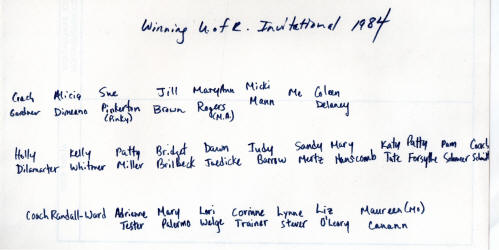 Winning U. of R. Invitational 1984
Coach Alicia Sue Jill MaryAnn Micki Me Colleen
Gardner Dimeano Pinkerton Brown Rogers Mann Delaney
(Pinky) (M.A.)
Holly Kelly Patty Bridget Dawn Judy Sandy Mary Katy Patty Pam Coach
Dilamarter Whitmer Miller Brilbeck Jaedicke Barrow Mertz Hanscomb Tate Forsythe
Coach Randall-Ward Adrienne Mary Lori Corinne Lynne Liz Maureen (Mo)
Tester Palermo Welge Trainer Staver O'Leary Canann